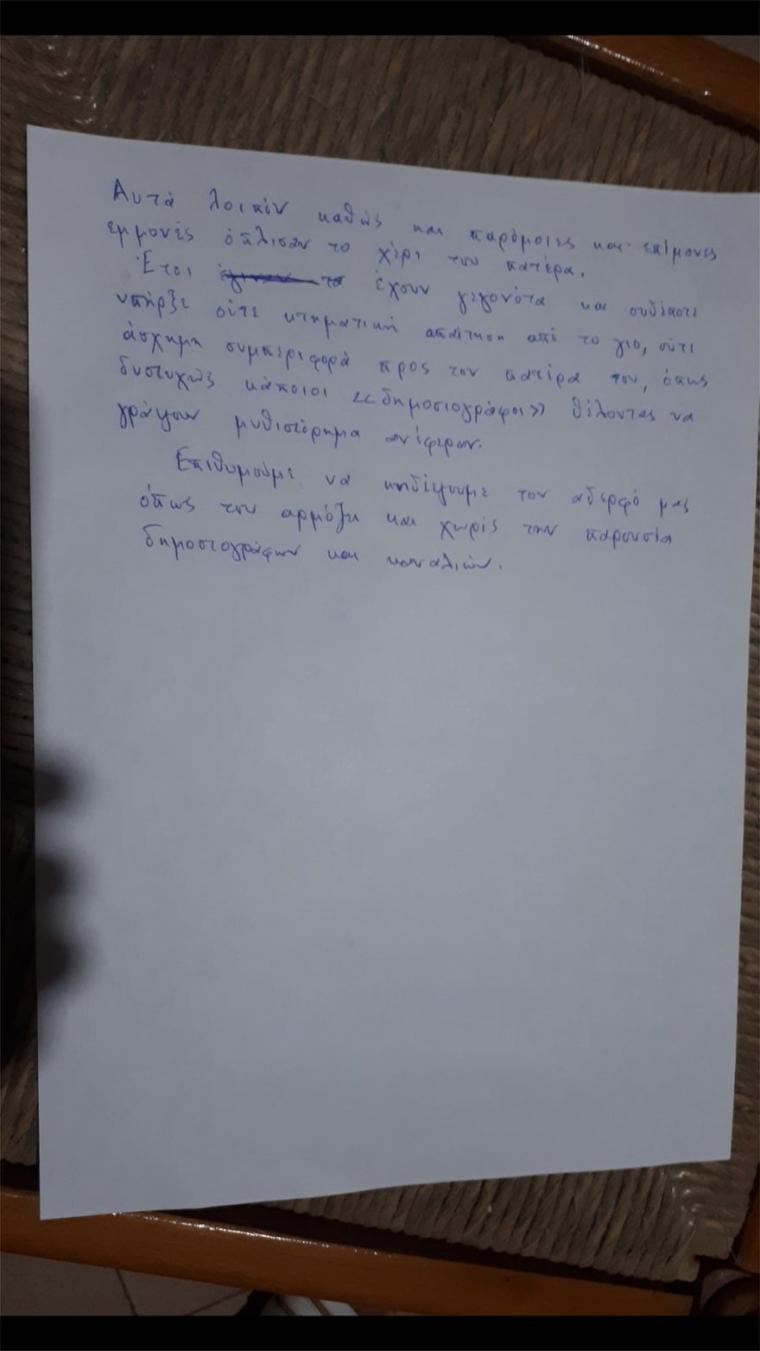 Αυτά λοιπόν καθώς και παρόμοιες και επίμονες
εμμονές όπλισαν το χέρι του πατέρα.
Έτσι έγιναν τα έχουν γεγονότα και ουδέποτε
υπήρξε ούτε κτηματική απαίτηση από το γιο, ούτε
άσχημη συμπεριφορά προς τον πατέρα του, όπως
δυστυχώς κάποιοι <<δημοσιογράφοι>> θέλοντας να
γράψουν μυθιστόρημα ανέφεραν.
Επιθυμούμε να κηδέψουμε τον αδερφό μας
όπως του αρμόζει και χωρίς την παρουσία
δημοσιογράφων και καναλιών.